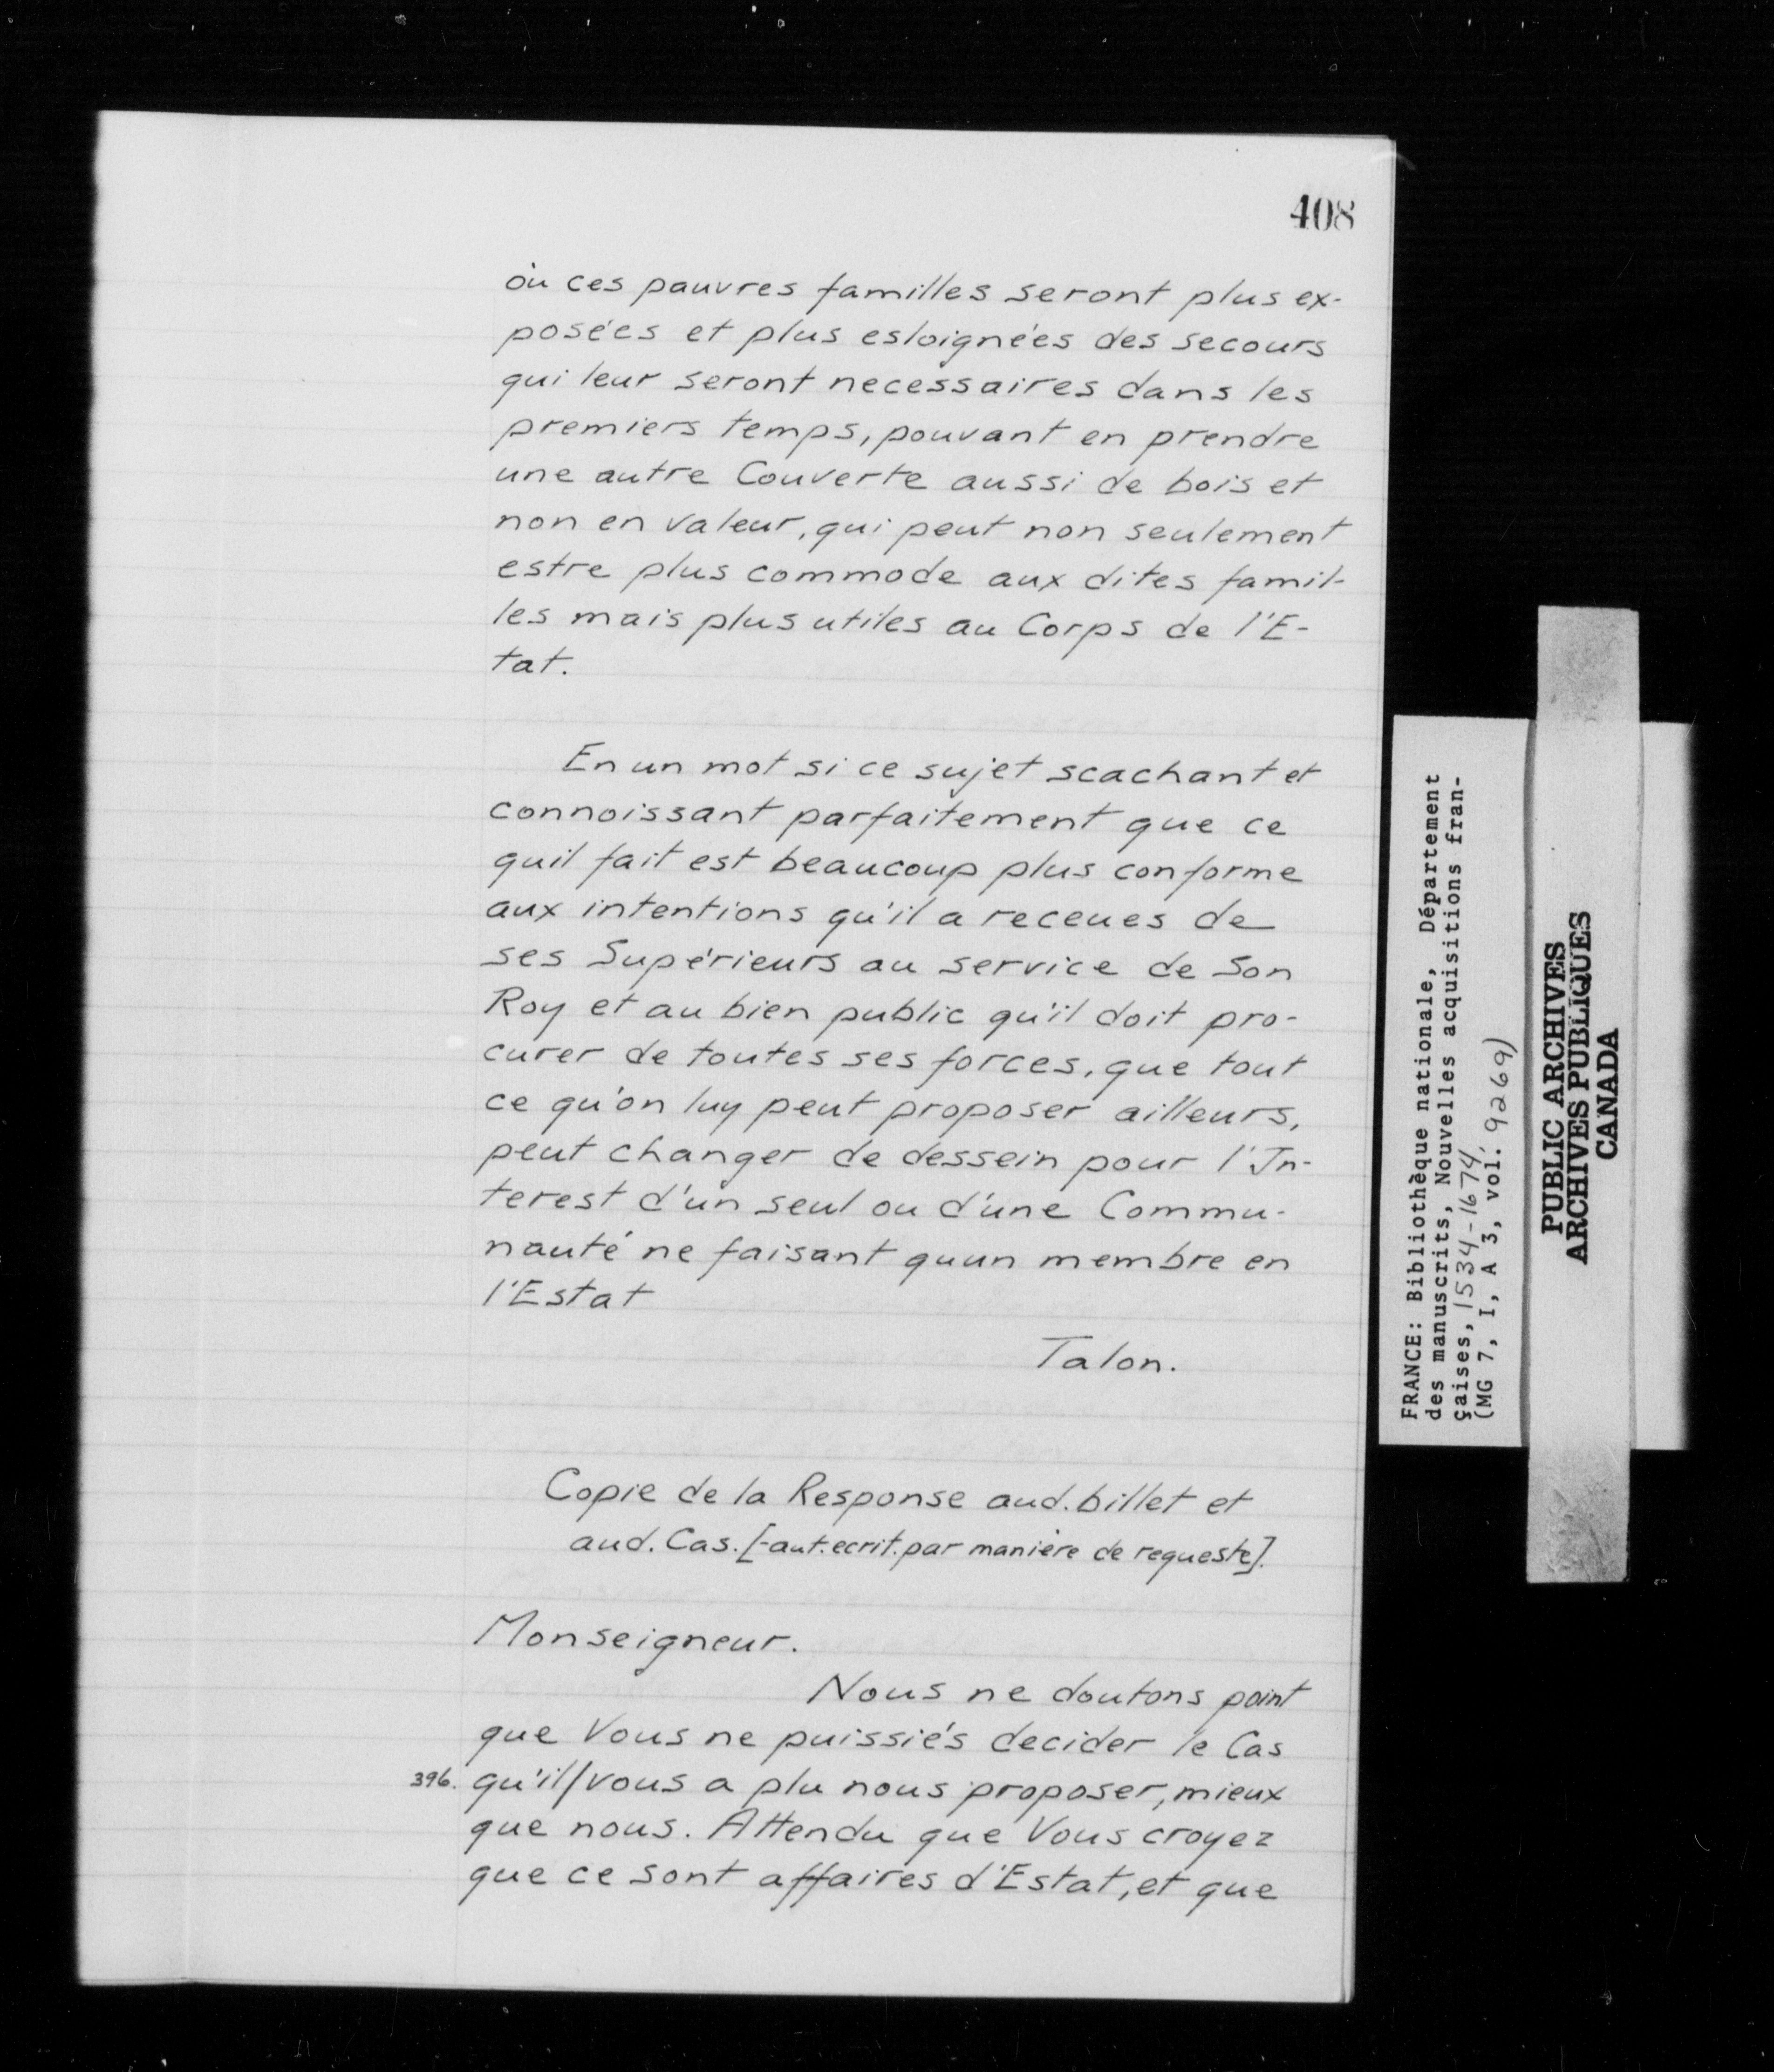 408
où ces pauvres familles seront plus ex-
posées et plus esloignées des secours
qui leur seront necessaires dans les
premiers temps, pouvant en prendre
une autre Couverte aussi de bois et
non en valeur, qui peut non seulement
estre plus commode aux dites famil-
les mais plus utiles au Corps de l'E-
tat.
En un mot si ce sujet scachant et
connoissant parfaitement que ce
quil fait est beaucoup plus conforme
aux intentions qu'il a receues de
ses Supérieurs au service de Son
Roy et au bien public qu'il doit pro-
curer de toutes ses forces, que tout
ce qu'on luy peut proposer ailleurs,
peut changer de dessein pour l'In-
terest d'un seul ou d'une Commu-
nauté ne faisant quun membre en
l'Estat
Talon.
Copie de la Response aud. billet et
aud. Cas. [-aut. ecrit. par manière de requeste].
Monseigneur.
Nous ne doutons point
que Vous ne puissiés decider le Cas
396. qu'il/vous a plu nous proposer, mieux
que nous. Attendu que Vous croyez
que ce sont affaires d'Estat, et que
FRANCE: Bibliothèque nationale, Département
des manuscrits, Nouvelles acquisitions fran-
çaises, 1534-1674
(MG 7, I, A 3, vol. 9269)
PUBLIC ARCHIVES
ARCHIVES PUBLIQUES
CANADA